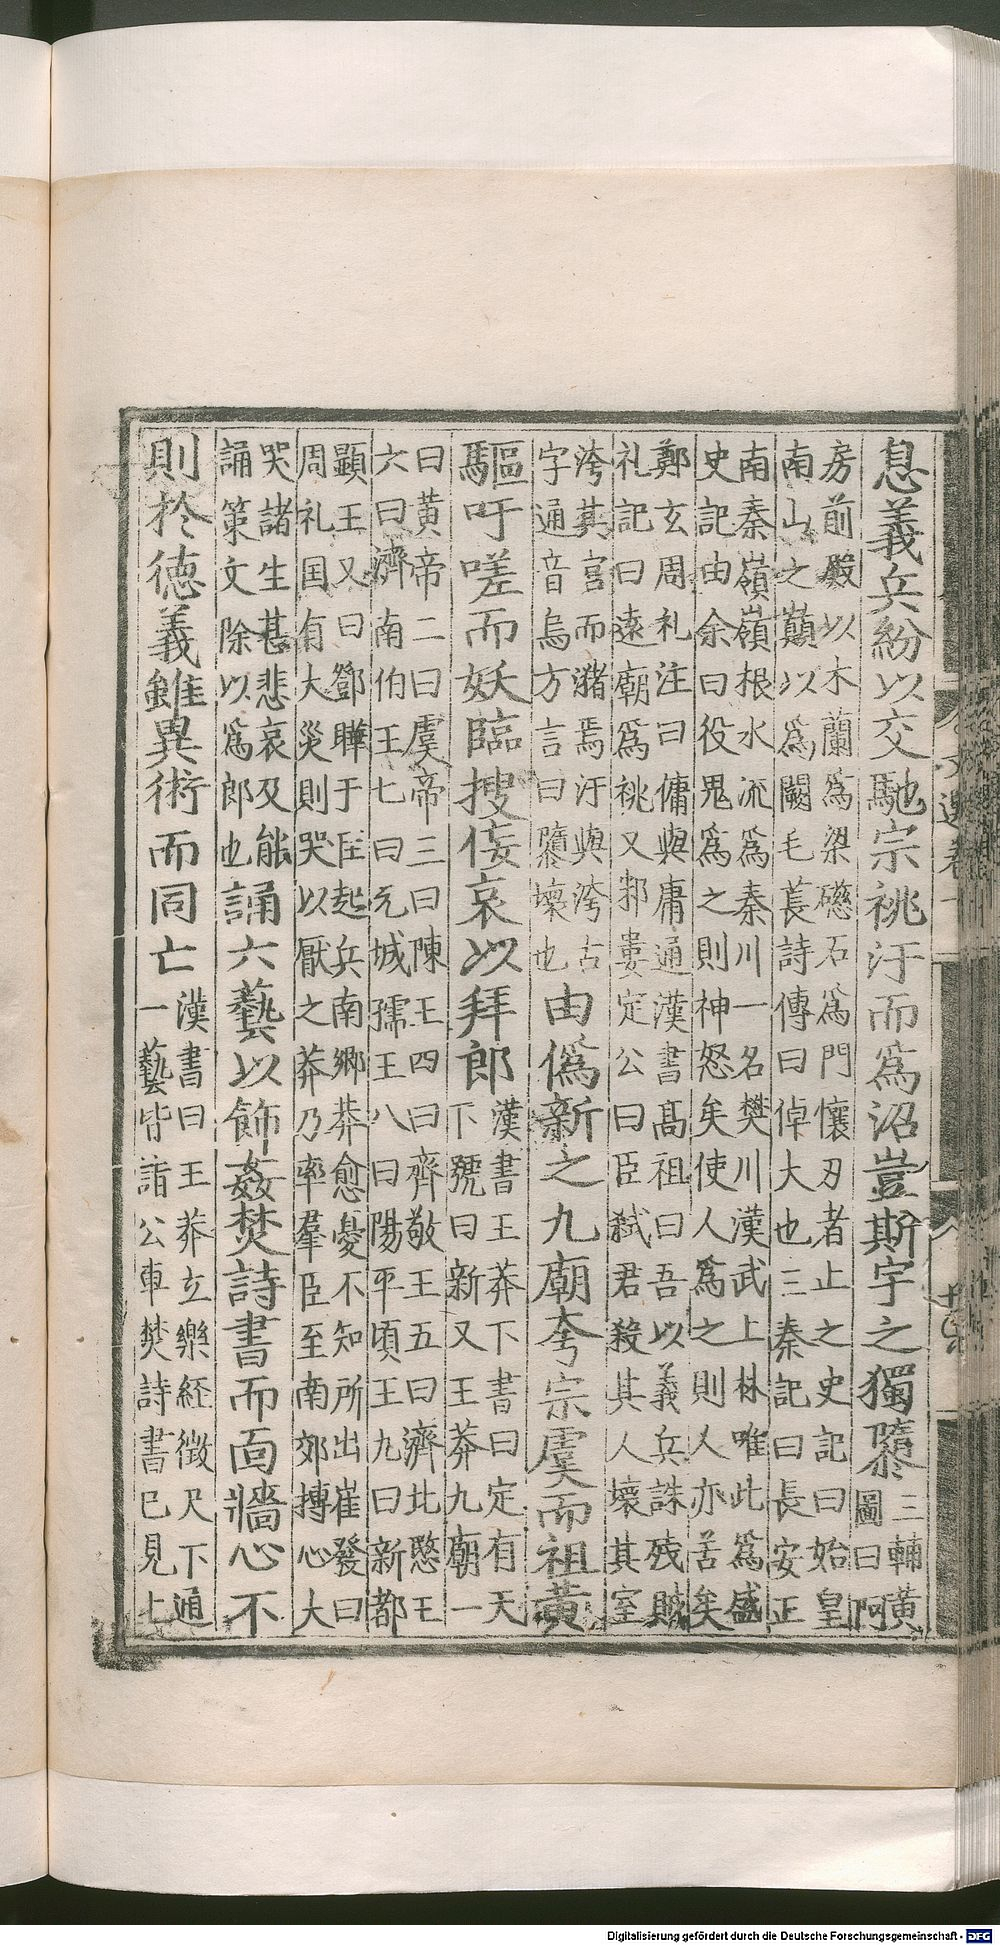 息義兵紛以交馳宗祧汙而爲沼豈斯宇之獨隳三輔黃
圖曰阿
房前殿以木蘭爲梁礠石爲門懷刃者止之史記曰始皇
南山之巔以爲闕毛萇詩傳曰倬大也三秦記曰長安正
南秦嶺嶺根水流爲秦川一名樊川漢武上林唯此爲盛
史記由余曰役鬼爲之則神怒矣使人爲之則人亦苦矣
鄭玄周礼注曰傭與庸通漢書髙祖曰吾以義兵誅残賊
礼記曰遠廟爲祧又邾婁定公曰臣弒君殺其人壞其室
洿其宫而瀦焉汙與洿古
字通音烏方言曰隳壞也由僞新之九廟夸宗虞而祖黃
驅吁嗟而妖臨搜佞哀以拜郎漢書王莽下書曰定有天
下號曰新又王莽九廟一
曰黃帝二曰虞帝三曰陳王四曰齊敬王五曰濟北愍王
六曰濟南伯王七曰元城孺王八曰陽平頃王九曰新都
顯王又曰鄧曄于匡起兵南郷莽愈憂不知所出崔發曰
周礼国有大災則哭以厭之莽乃率羣臣至南郊搏心大
哭諸生甚悲哀及能
誦策文除以爲郎也誦六藝以飾姦焚詩書而面牆心不
則於徳義雖異術而同亡漢書曰王莽立樂経徴天下通
一藝皆詣公車焚詩書已見上
Digitalisierung gefördert durch die Deutsche Forschungsgemeinschaft - DFG